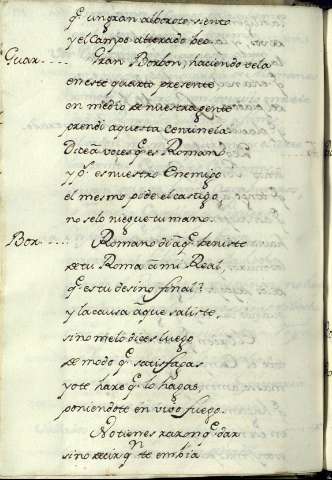 q̃ un gran alboroto siento
y el Campo alterado beo.
Guar..... Gran Borbon, haciendo vela
en este quarto presente
en medio de nuestra gente
prendi aquesta Centinela
Dice a voces q̃ es Romano
y q̃ es nuestro Enemigo
el mesmo pide el castigo
no selo niegue tu mano.
Bor..... Romano di a q̃ beniste
de tu Roma a mi Real,
q̃ es tu desino final?
y la causa a que saliste,
sino melo dices luego
de modo q̃ satisfagas
yo te hare q̃ lo hagas,
poniendote en vivo fuego.
No tienes razon q̃ dar
sino decir qn te embia